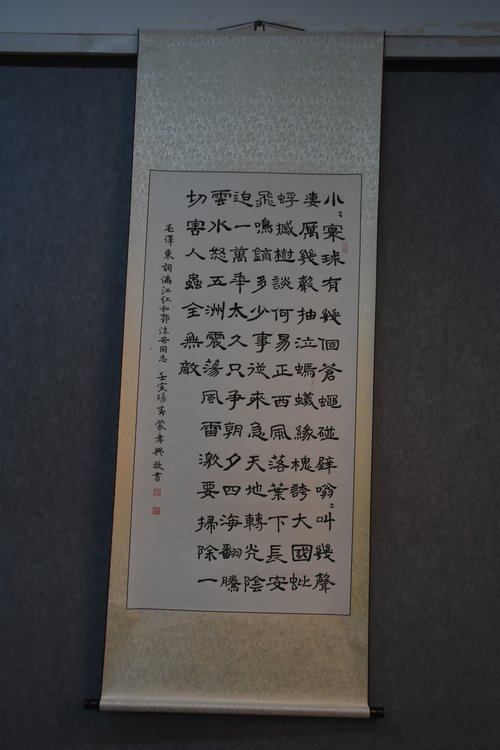 小〻寰球有幾個蒼蠅碰壁嗡〻叫幾聲
凄厲幾聲抽泣螞蟻緣槐誇大國蚍
蜉撼樹談何易正西風落葉下長安
飛鳴鏑多少事從來急天地轉光陰
迫一萬年太久只爭朝夕四海翻騰
雲水怒五洲震蕩風雷激要掃除一
切害人蟲全無敵
毛澤東詞滿江紅和郭沫若同志 壬寅陽春蒙孝興敬書